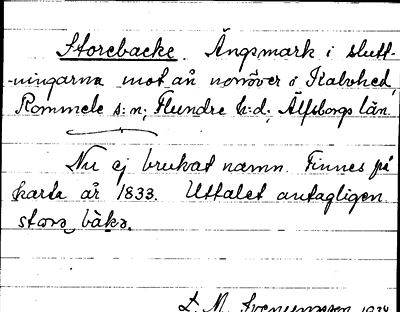 Storebacke. Ängsmark i slutt-
-ningarna mot ån norröver i Kalvhed,
Rommele s:n; Flundre h:d; Älfsborgs län.
Nu ej brukat namn. Finnes på
karta år 1833. Uttalet antagligen
stora bàka.
D. M. 1934